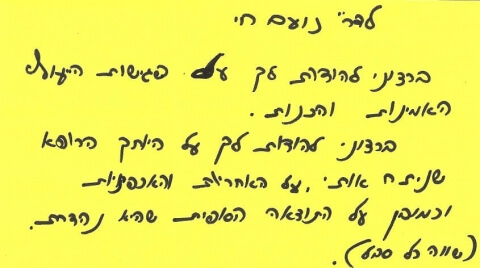 לדר' נועם חי
ברצוני להודות לך על פגישות היעוץ
האמינות והכנות.
ברצוני להודות לך על היותך הרופא
שניתח אותי, על האחריות והאכפתיות
וכמובן על התוצאה הסופית שהיא נהדרת.
(שווה כל סבל).